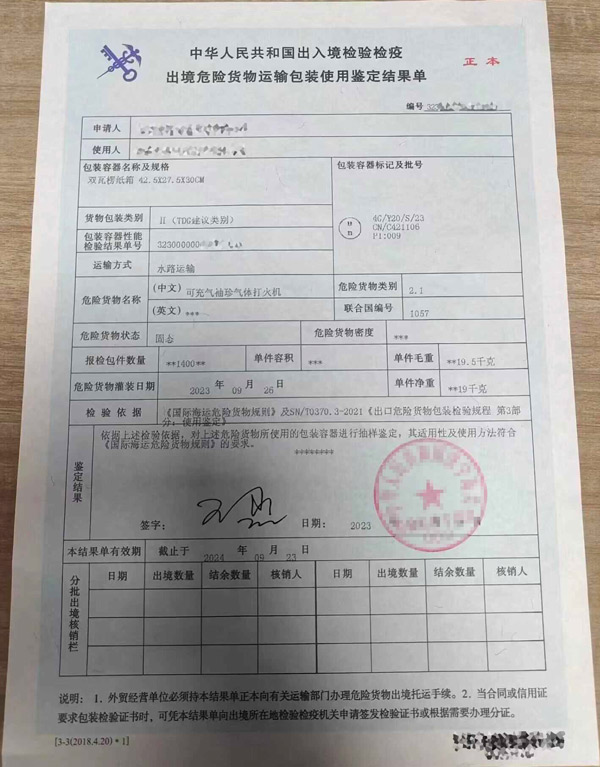 中华人民共和国出入境检验检疫
出境危险货物运输包装使用鉴定结果单
正本
编号
申请人
使用人
包装容器名称及规格
双瓦楞纸箱 42.5X27.5X30CM
包装容器标记及批号
un
4G/Y20/S/23
CN/C421106
PI:009
货物包装类别 II（TDG建议类别）
包装容器性能检验结果单号 323000000
运输方式 水路运输
危险货物名称 （中文） 可充气袖珍气体打火机
（英文） ***
危险货物类别 2.1
联合国编号 1057
危险货物状态 固态 危险货物密度 ***
报检包件数量 **1400** 单件容积 *** 单件毛重 **19.5千克
危险货物灌装日期 2023 年 09 月 26 日 单件净重 **19千克
检验依据 《国际海运危险货物规则》及SN/T0370.3-2021《出口危险货物包装检验规程 第3部
分：使用鉴定》
鉴定结果
依据上述检验依据，对上述危险货物所使用的包装容器进行抽样鉴定，其适用性及使用方法符合
《国际海运危险货物规则》的要求。
********
签字： 日期： 2023
本结果单有效期 截止于 2024 年 09 月 23 日
分批出境核销栏
日期 出境数量 结余数量 核销人 日期 出境数量 结余数量 核销人
说明：1．外贸经营单位必须持本结果单正本向有关运输部门办理危险货物出境托运手续。2．当合同或信用证
要求包装检验证书时，可凭本结果单向出境所在地检验检疫机关申请签发检验证书或根据需要办理分证。
[3-3(2018.4.20)*1]